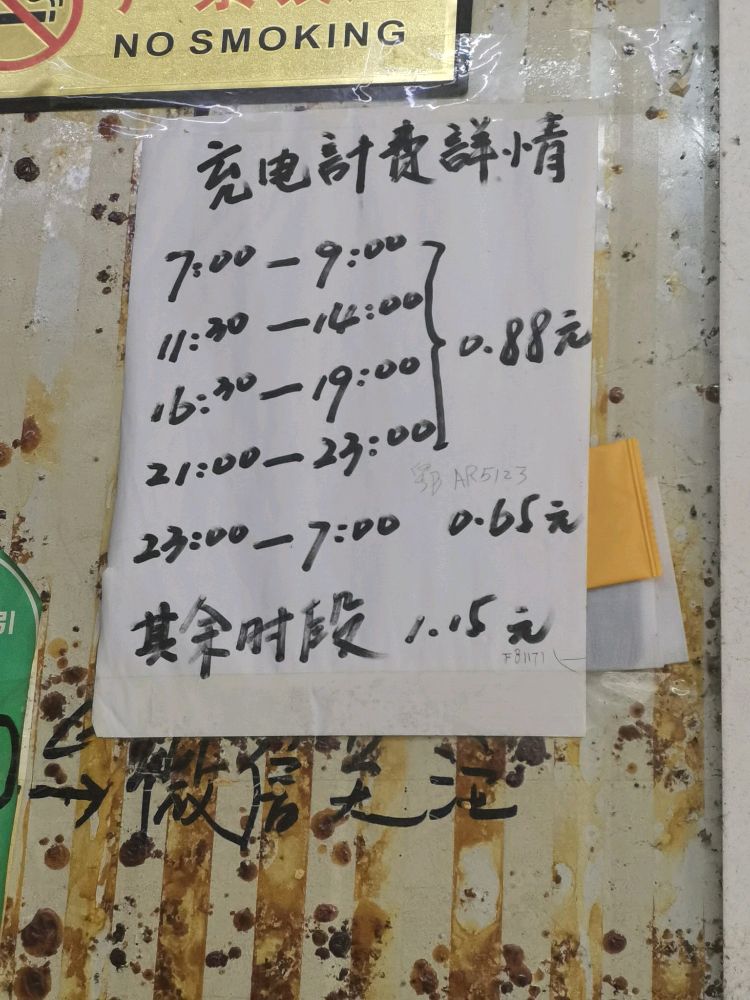 NO SMOKING
充电計费詳情
7:00—9:00
11:30—14:00
16:30—19:00
21:00—23:00
0.88元
鄂 AR5123
23:00—7:00 0.65元
其余时段 1.15元
F81171
引
→微信